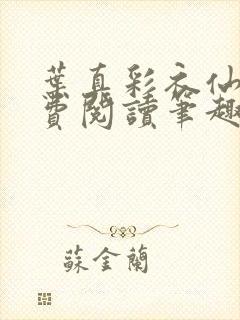 葉真彩衣仙
費閱讀筆趣
蘇金蘭